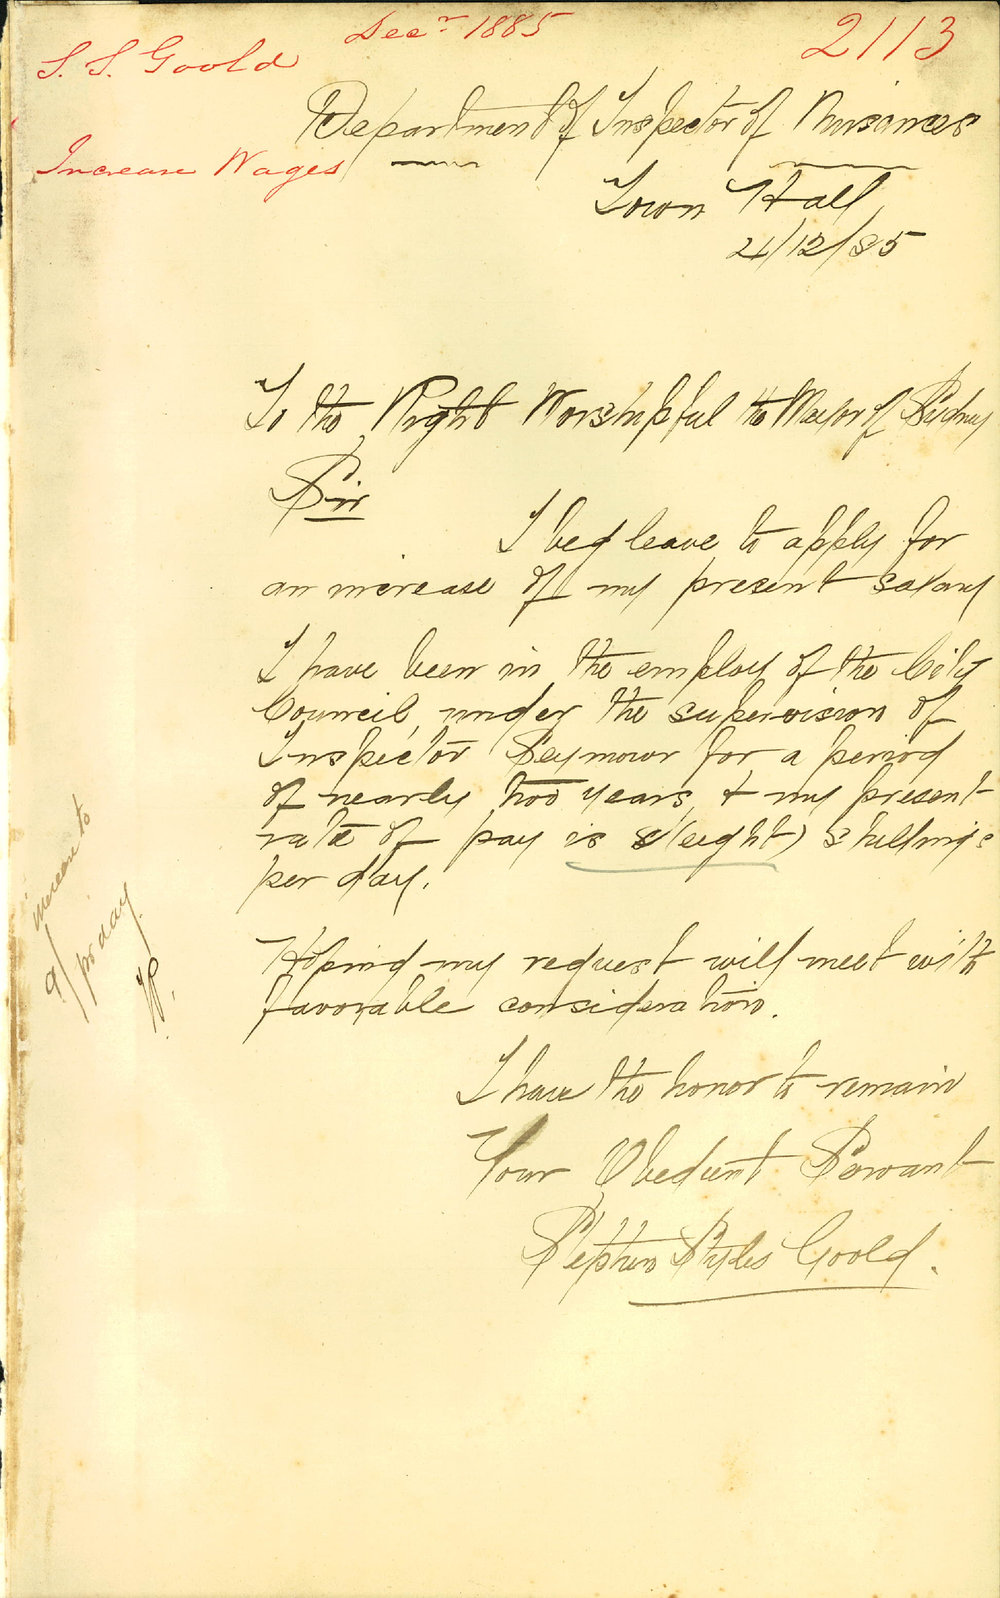 Decr 1885
2113
S. S. Goold
Department of Inspector of Nuisances
Increase Wages
Town Hall
21/12/85
To the Right Worshipful the Mayor of Sydney
Sir
I beg leave to apply for
an increase of my present salary
I have been in the employ of the City
Council, under the supervision of
Inspector Seymour for a period
of nearly two years, & my present
rate of pay is 8/(eight) shillings
per day.
Hoping my request will meet with
favorable consideration.
I have the honor to remain
Your Obedient Servant
Stephen Styles Goold.
increase to
9/ pr day.